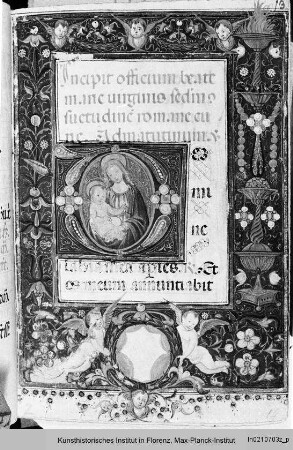 13
Incipit officium beate
marie virginis secundum
suetudinē romane cu
rie. Ad matutinum. V
D
mi
ne
labia mea aperies. R. Et
os meum annuntiabit
Kunsthistorisches Institut in Florenz, Max-Planck-Institut
ln0210703z_p